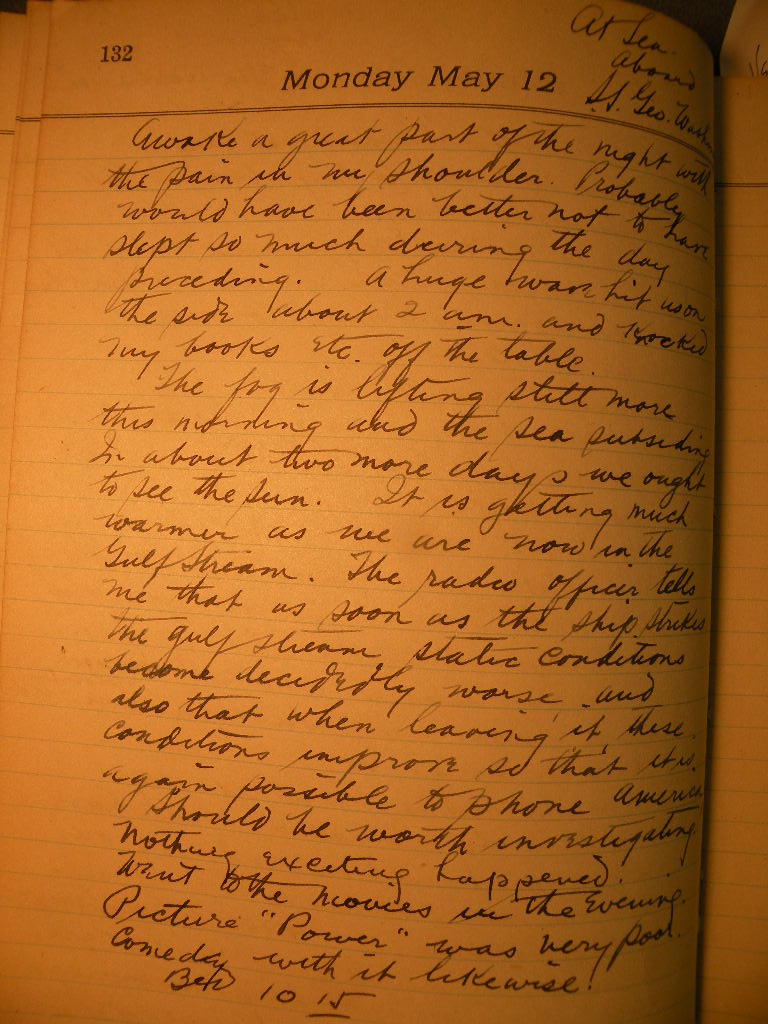 132
At Sea.
Aboard
S.S. Geo. Wash
Monday May 12
Awake a great part of the night with
the pain in my shoulder. Probably
would have been better not to have
slept so much during the day
preceding. A huge wave hit us on
the side about 2 am. and knocked
my books etc. off the table.
The fog is lifting still more
this morning and the sea subsiding
In about two more days we ought
to see the sun. It is getting much
warmer as we are now in the
Gulf Stream. The radio officer tells
me that as soon as the ship strikes
the gulf stream static conditions
become decidedly worse and
also that when leaving it, these
conditions improve so that it is
again possible to phone America
Should be worth investigating.
Nothing exciting happened.
Went to the movies in the evening.
Picture "Power" was very poor.
Comedy with it likewise!
Bed 10 15